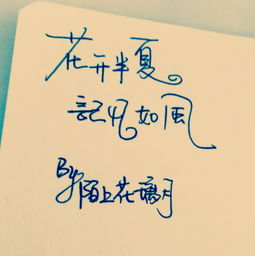 花开半夏。
記忆如風
By 陌上花璃月